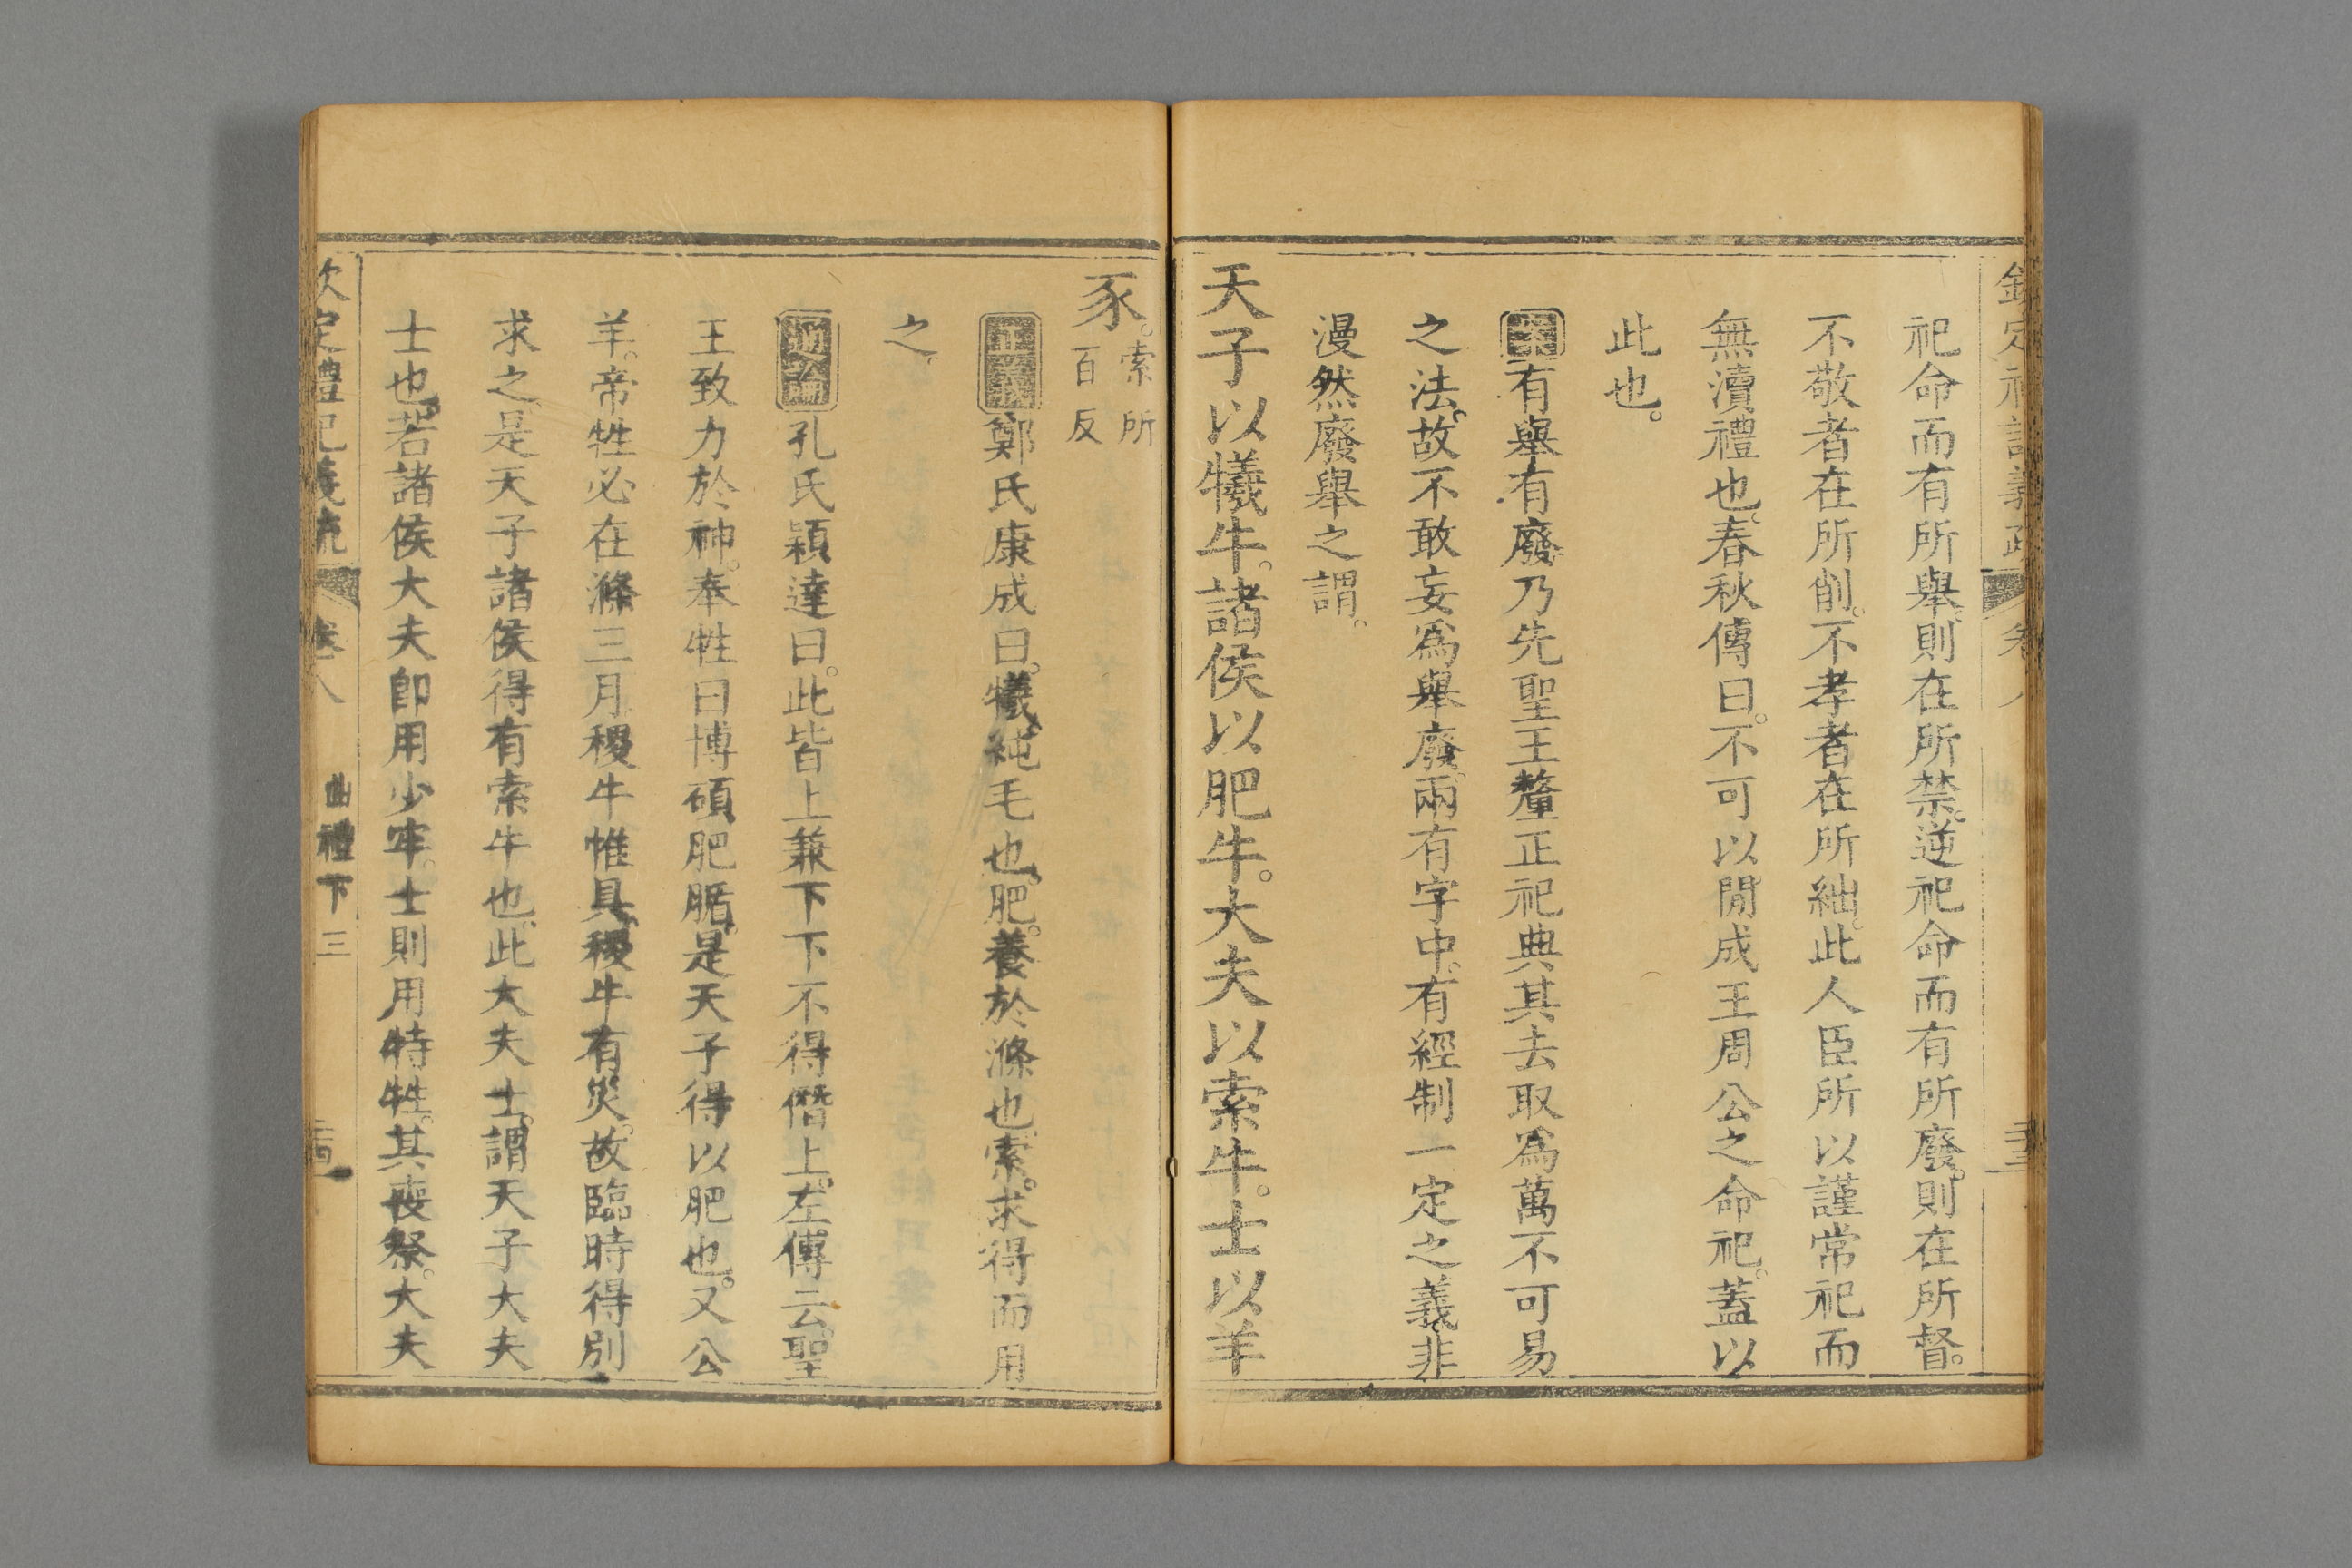 祀命而有所舉則在所禁。逆祀命而有所廢。則在所督。
不敬者在所削。不孝者在所絀。此人臣所以謹常祀而
無瀆禮也。春秋傳曰。不可以閒成王周公之命祀。蓋以
此也。
案有舉有廢乃先聖王釐正祀典其去取為萬不可易
之法。故不敢妄為舉廢。兩有字中。有經制一定之義非
漫然廢舉之謂。
天子以犧牛。諸侯以肥牛。大夫以索牛。士以羊
豕。索所百反
正義鄭氏康成曰。犧純毛也。肥。養於滌也索。求得而用
之。
通論孔氏穎達曰。此皆上兼下下不得僭上。左傳云。聖
王致力於神。奉牲曰博碩肥腯。是天子得以肥也。又公
羊。帝牲必在滌三月稷牛惟具。稷牛有災。故臨時得別
求之。是天子諸侯得有索牛也。此大夫士。謂天子大夫
士也。若諸侯大夫卽用少牢。士則用特牲。其喪祭。大夫
欽定禮記義疏 卷八 曲禮下三